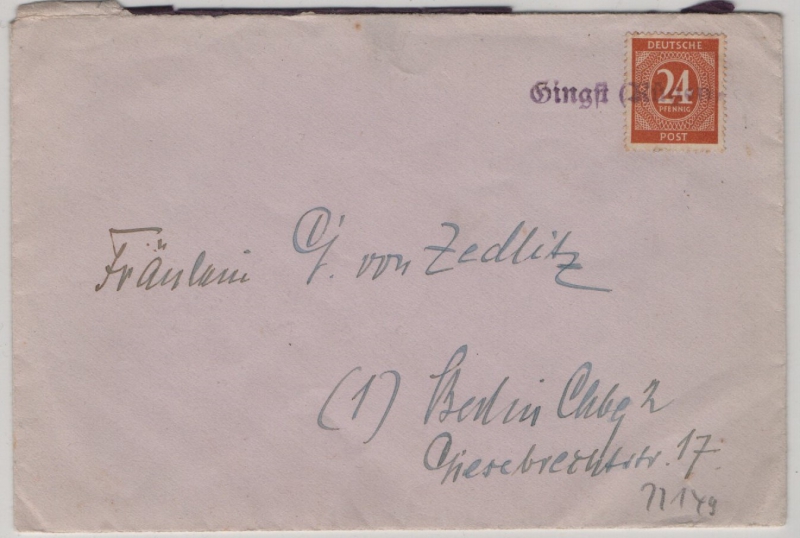 DEUTSCHE
24
PFENNIG
POST
Gingst
Fräulein G. von Zedlitz
(1) Berlin Chbg 2
Giesebrechtstr. 17.